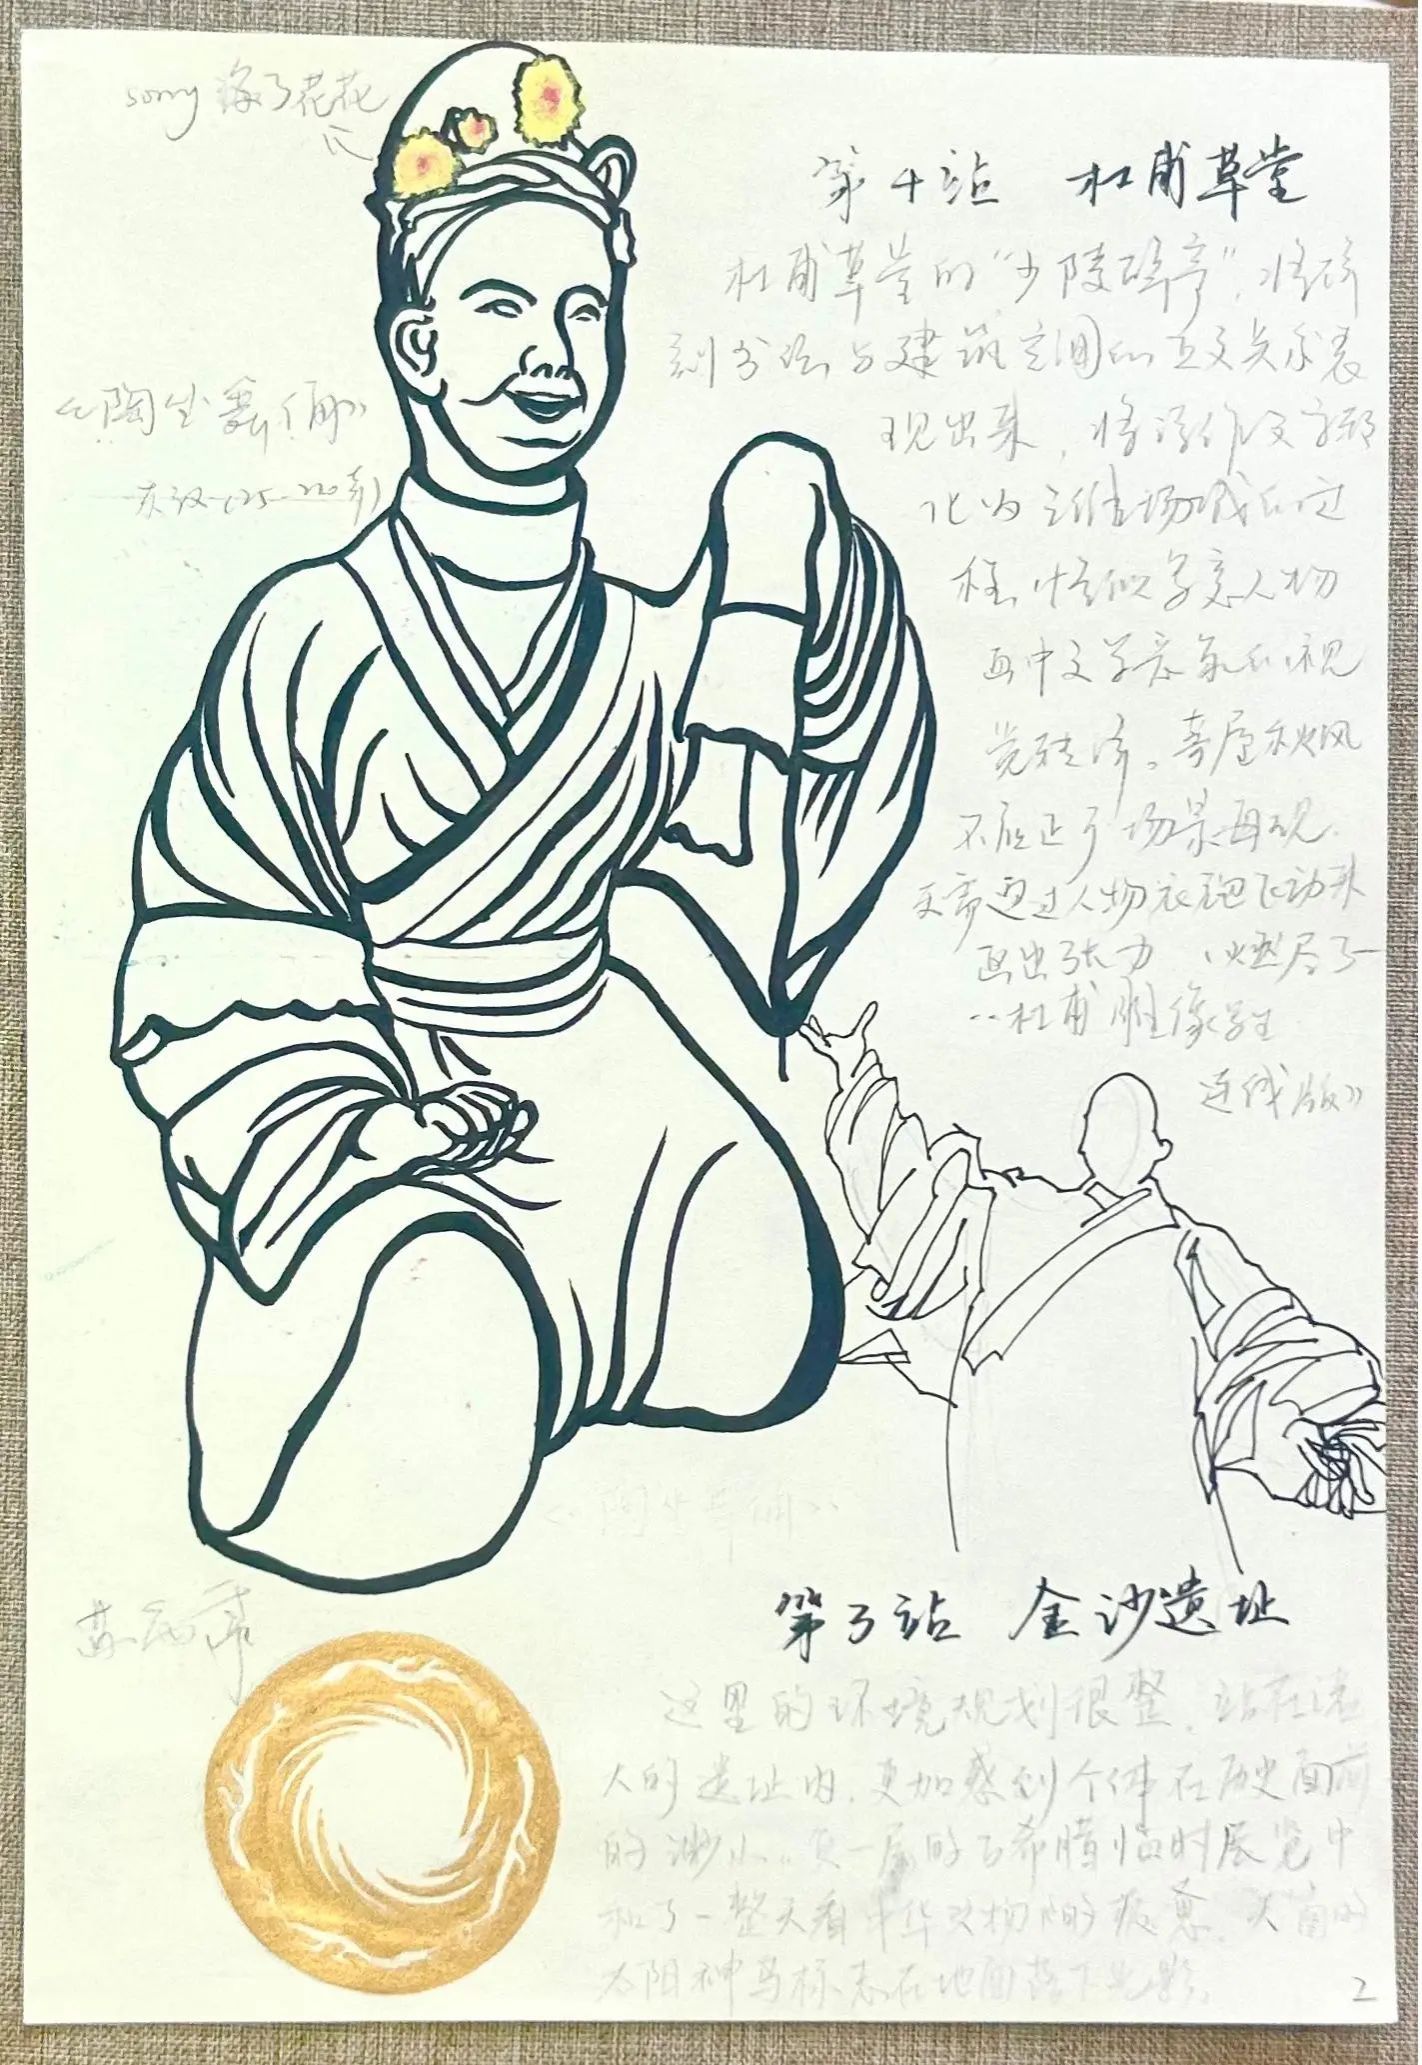 sorry 涂了花花
第十站 杜甫草堂
杜甫草堂的“少陵碑亭”，将碑
刻书法与建筑空间的立文关系表
现出来，将诗作文字
化为三维场域的过
程，恰似写意人物
画中文学意象的视
觉转译。茅屋秋风
不应止于场景再现，
更需通过人物衣袍飞动来
画出张力 《燃尽了—
--杜甫雕像写生
连线版》
《陶坐舞俑》
东汉（25-220年）
《陶坐舞俑》
第3站 金沙遗址
这里的环境规划很整，站在
人的遗址内，更加感到个体在历史面前
的渺小。负一层的古希腊临时展览中
和了一整天看中华文物的疲惫，
太阳神鸟标志在地面落下光影。
2